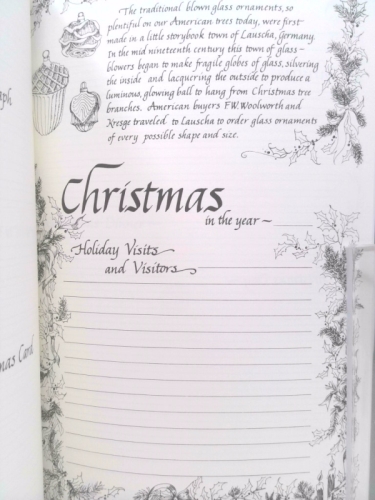 The traditional blown glass ornaments, so
plentiful on our American trees today, were first
made in a little storybook town of Lauscha, Germany.
In the mid nineteenth century this town of glass-
blowers began to make fragile globes of glass, silvering
the inside and lacquering the outside to produce a
luminous, glowing ball to hang from Christmas tree
branches. American buyers F.W. Woolworth and
Kresge traveled to Lauscha to order glass ornaments
of every possible shape and size.
Christmas
in the year ~
Holiday Visits
and Visitors
Card